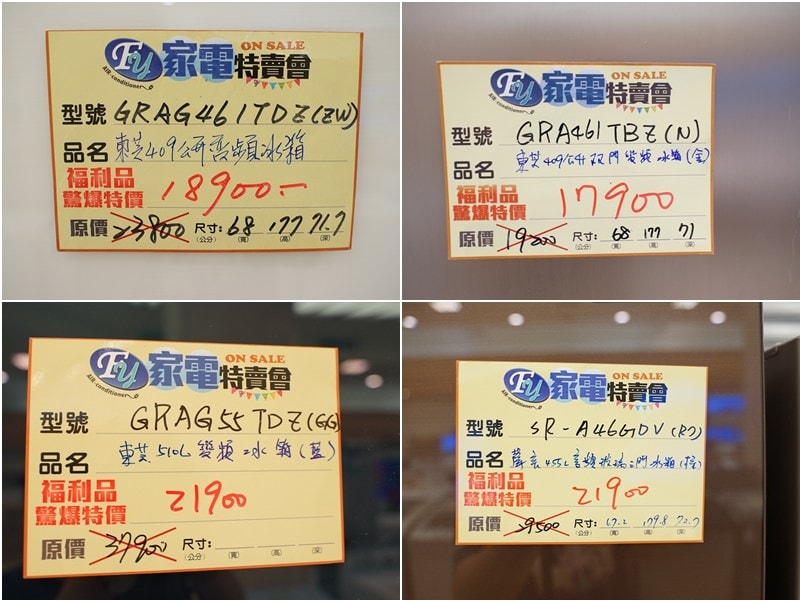 Fy 家電特賣會 ON SALE
AIR-conditioner
型號 GRAG461TDZ(ZW)
品名 東芝409公升變頻冰箱
福利品
驚爆特價 18900-
原價 23800 尺寸:(公分) 68(寬) 177(高) 71.7(深)
Fy 家電特賣會 ON SALE
AIR-conditioner
型號 GRA461TBZ(N)
品名 東芝409公升双門變頻冰箱(金)
福利品
驚爆特價 17900
原價 19200 尺寸:(公分) 68(寬) 177(高) 71(深)
Fy 家電特賣會 ON SALE
AIR-conditioner
型號 GRAG55TDZ(GG)
品名 東芝510L變頻冰箱(藍)
福利品
驚爆特價 21900
原價 37900 尺寸:(公分) (寬) (高) (深)
Fy 家電特賣會 ON SALE
AIR-conditioner
型號 SR-A46GDV
品名 聲寶455L變頻玻璃二門冰箱
福利品
驚爆特價 21900
原價 39500 尺寸:(公分) (寬) 179.8(高) (深)